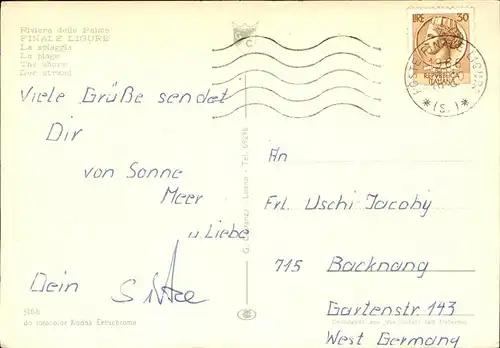 Riviera delle Palme
FINALE LIGURE
La spiaggia
La plage
The shore
Der strand
Viele Grüße sendet
Dir
von Sonne
Meer
u. Liebe
Dein
5166
da fotocolor Kodak Ektachrome
LIRE 30
REPUBBLICA
ITALIANA
POSTE FINALE LIGURE
* (S.) *
An
Frl. Uschi Jacoby
715 Backnang
Gartenstr. 143
West Germany